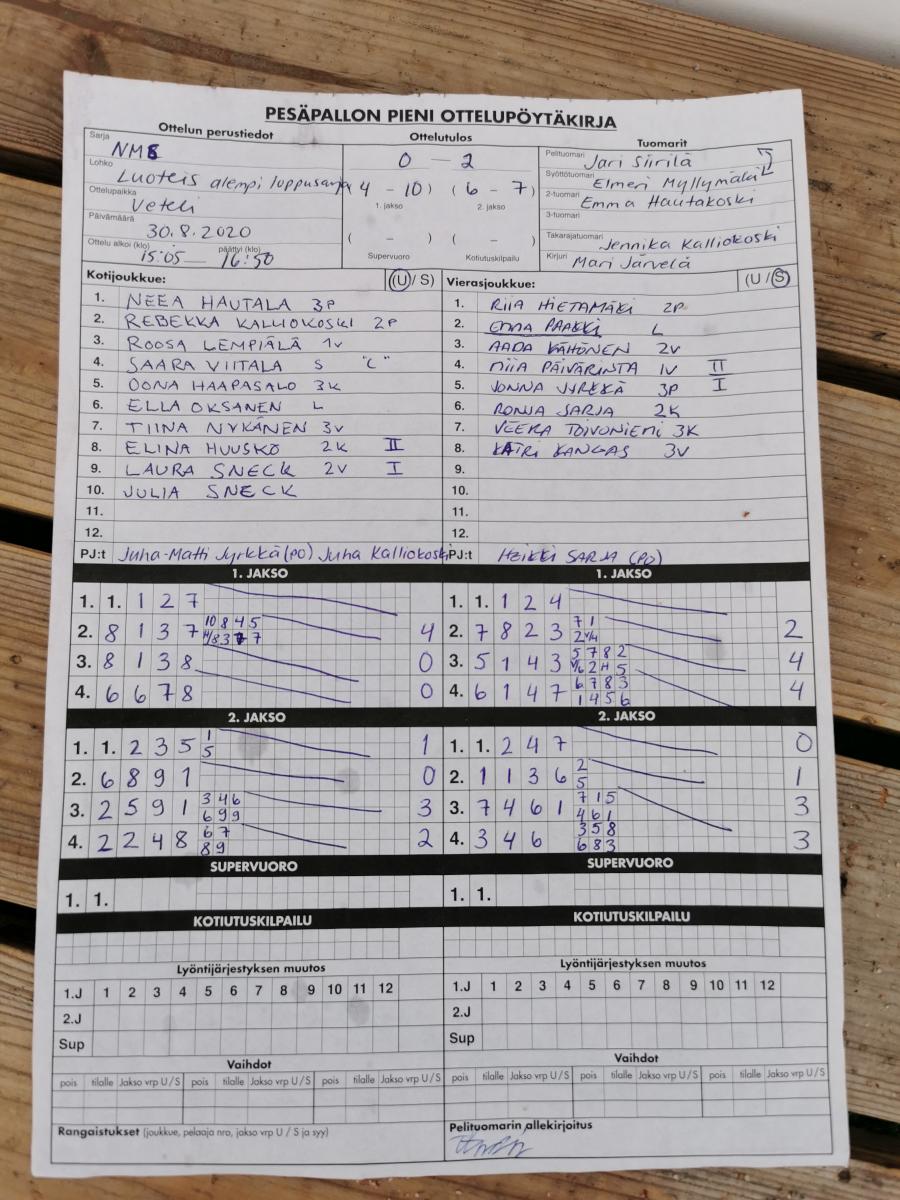 PESÄPALLON PIENI OTTELUPÖYTÄKIRJA
Ottelun perustiedot
Ottelutulos
Tuomarit
Sarja
Lohko Luoteis alempi loppusarja
Ottelupaikka Veteli
Päivämäärä 30.8.2020
Ottelu alkoi (klo) 15:05 — päättyi (klo) 16:50
0 — 2
(4 – 10) (6 – 7)
1. jakso 2. jakso
( – ) ( – )
Supervuoro Kotiutuskilpailu
Pelituomari Jari Siirilä
Syöttötuomari Elmeri Myllymäki
2-tuomari Emma Hautakoski
3-tuomari
Takarajatuomari Jennika Kalliokoski
Kirjuri Mari Järvelä
Kotijoukkue: (U/S)
1. NEEA HAUTALA 3P
2. REBEKKA KALLIOKOSKI 2P
3. ROOSA LEMPIÄLÄ 1V
4. SAARA VIITALA S "C"
5. OONA HAAPASALO 3K
6. ELLA OKSANEN L
7. TIINA NYKÄNEN 3V
8. ELINA HUUSKO 2K II
9. LAURA SNECK 2V I
10. JULIA SNECK
11.
12.
PJ:t Juha-Matti Jyrkkä (PO) Juha Kalliokoski
Vierasjoukkue: (U/S)
1. RIIA HIETAMÄKI 2P
2. EMMA PAAKKI L
3. AADA KÄHÖNEN 2V
4. MIIA PÄIVÄRINTA 1V II
5. JONNA JYRKKÄ 3P I
6. RONJA SARJA 2K
7. VEERA TOIVONIEMI 3K
8. KATRI KANGAS 3V
9.
10.
11.
12.
PJ:t HEIKKI SARJA (PO)
1. JAKSO
1. 1. 1 2 7
2. 8 1 3 7 10 8 4 5 4
3. 8 1 3 8 0
4. 6 6 7 8 0
1. JAKSO
1. 1. 1 2 4
2. 7 8 2 3 7 1 2
3. 5 1 4 3 5 7 8 2 4
4. 6 1 4 7 6 7 8 3 4
1 4 5 6
2. JAKSO
1. 1. 2 3 5 1 1
5
2. 6 8 9 1 0
3. 2 5 9 1 3 4 6 3
6 9 9
4. 2 2 4 8 6 7 2
8 9
2. JAKSO
1. 1. 2 4 7 0
2. 1 1 3 6 2 1
5
3. 7 4 6 1 7 1 5 3
4 6 1
4. 3 4 6 3 5 8 3
6 8 3
SUPERVUORO
1. 1.
SUPERVUORO
1. 1.
KOTIUTUSKILPAILU
KOTIUTUSKILPAILU
Lyöntijärjestyksen muutos
1.J 1 2 3 4 5 6 7 8 9 10 11 12
2.J
Sup
Lyöntijärjestyksen muutos
1.J 1 2 3 4 5 6 7 8 9 10 11 12
2.J
Sup
Vaihdot
pois tilalle Jakso vrp U/S pois tilalle Jakso vrp U/S pois tilalle Jakso vrp U/S
Vaihdot
pois tilalle Jakso vrp U/S pois tilalle Jakso vrp U/S pois tilalle Jakso vrp U/S
Rangaistukset (joukkue, pelaaja nro, jakso vrp U / S ja syy)
Pelituomarin allekirjoitus